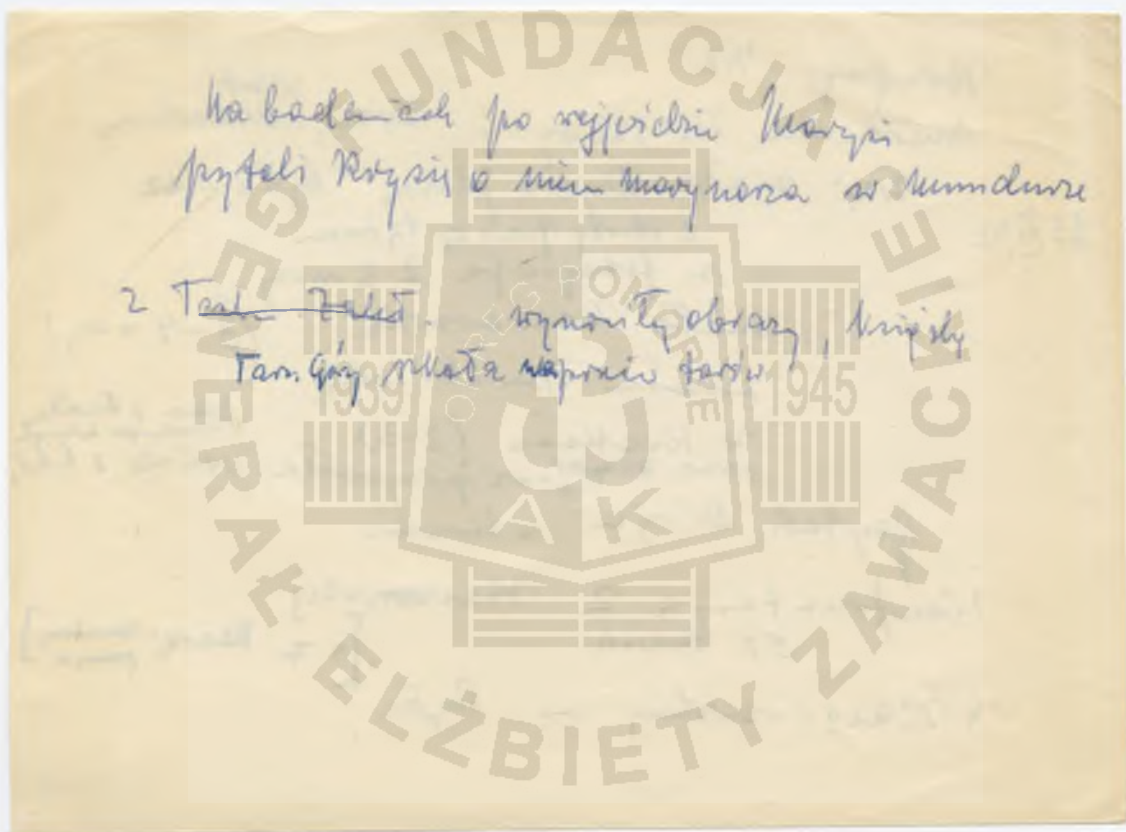 Na badaniach po wyjeździe Marysi
pytali Krysię o niem. marynarza w mundurze
z Tarn. wynosiły obrazy, książki
Tarn. Góry
FUNDACJA GENERAŁ ELŻBIETY ZAWACKIEJ
OKRĘG POMORZE
1939 1945
AK